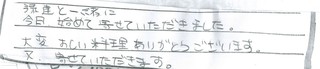 今日 始めて 寄せていただきました。
大変 おいしい 料理 ありがとうございます。
又、寄せていただきます。